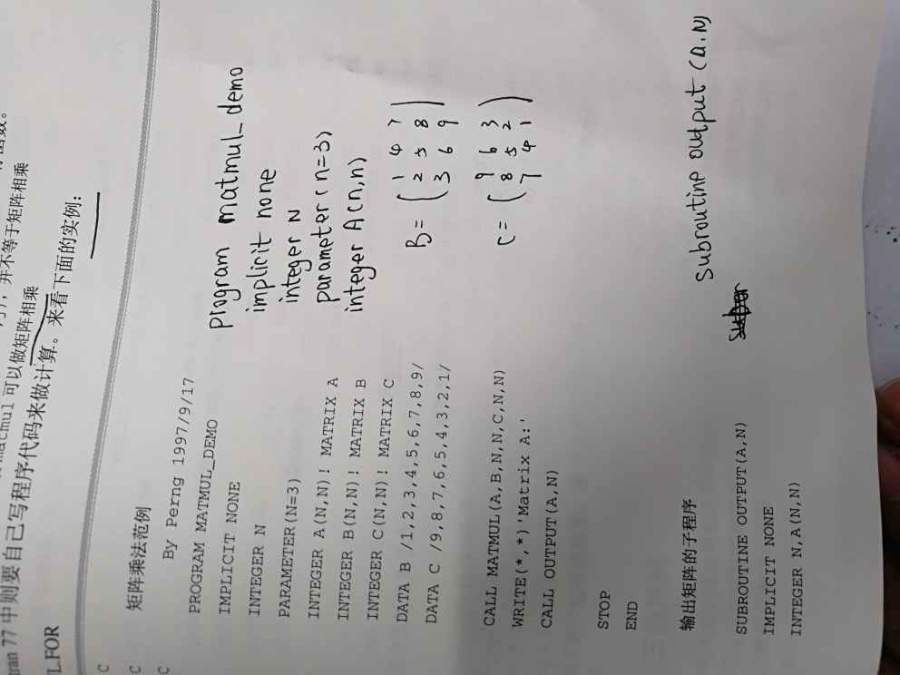 可以做矩阵相乘
77 中则要自己写程序代码来做计算。来看下面的实例:
L.FOR
C
C 矩阵乘法范例
C By Perng 1997/9/17
PROGRAM MATMUL_DEMO
IMPLICIT NONE
INTEGER N
PARAMETER(N=3)
INTEGER A(N,N)! MATRIX A
INTEGER B(N,N)! MATRIX B
INTEGER C(N,N)! MATRIX C
DATA B /1,2,3,4,5,6,7,8,9/
DATA C /9,8,7,6,5,4,3,2,1/
CALL MATMUL(A,B,N,N,C,N,N)
WRITE(*,*)'Matrix A:'
CALL OUTPUT(A,N)
STOP
END
输出矩阵的子程序
SUBROUTINE OUTPUT(A,N)
IMPLICIT NONE
INTEGER N,A(N,N)
program matmul_demo
implicit none
integer N
parameter(n=3)
integer A(n,n)
B= ( 1 4 7
2 5 8
3 6 9 )
C= ( 9 6 3
8 5 2
7 4 1 )
Subroutine output (a,N)